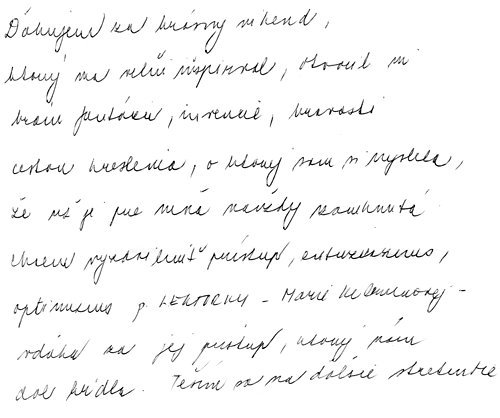 Ďakujem za krásny víkend,
ktorý ma veľmi inšpiroval, otvoril mi
brány fantázie, invencie, hravosti
cestou kreslenia, o ktorej som si myslela,
že už je pre mňa navždy zamknutá
chcem vyzdvihnúť prístup, entuziazmus,
optimizmus p. LEKTORKY - Márie
vďaka za jej prístup, ktorý nám
dal krídla. Teším sa na ďalšie stretnutie